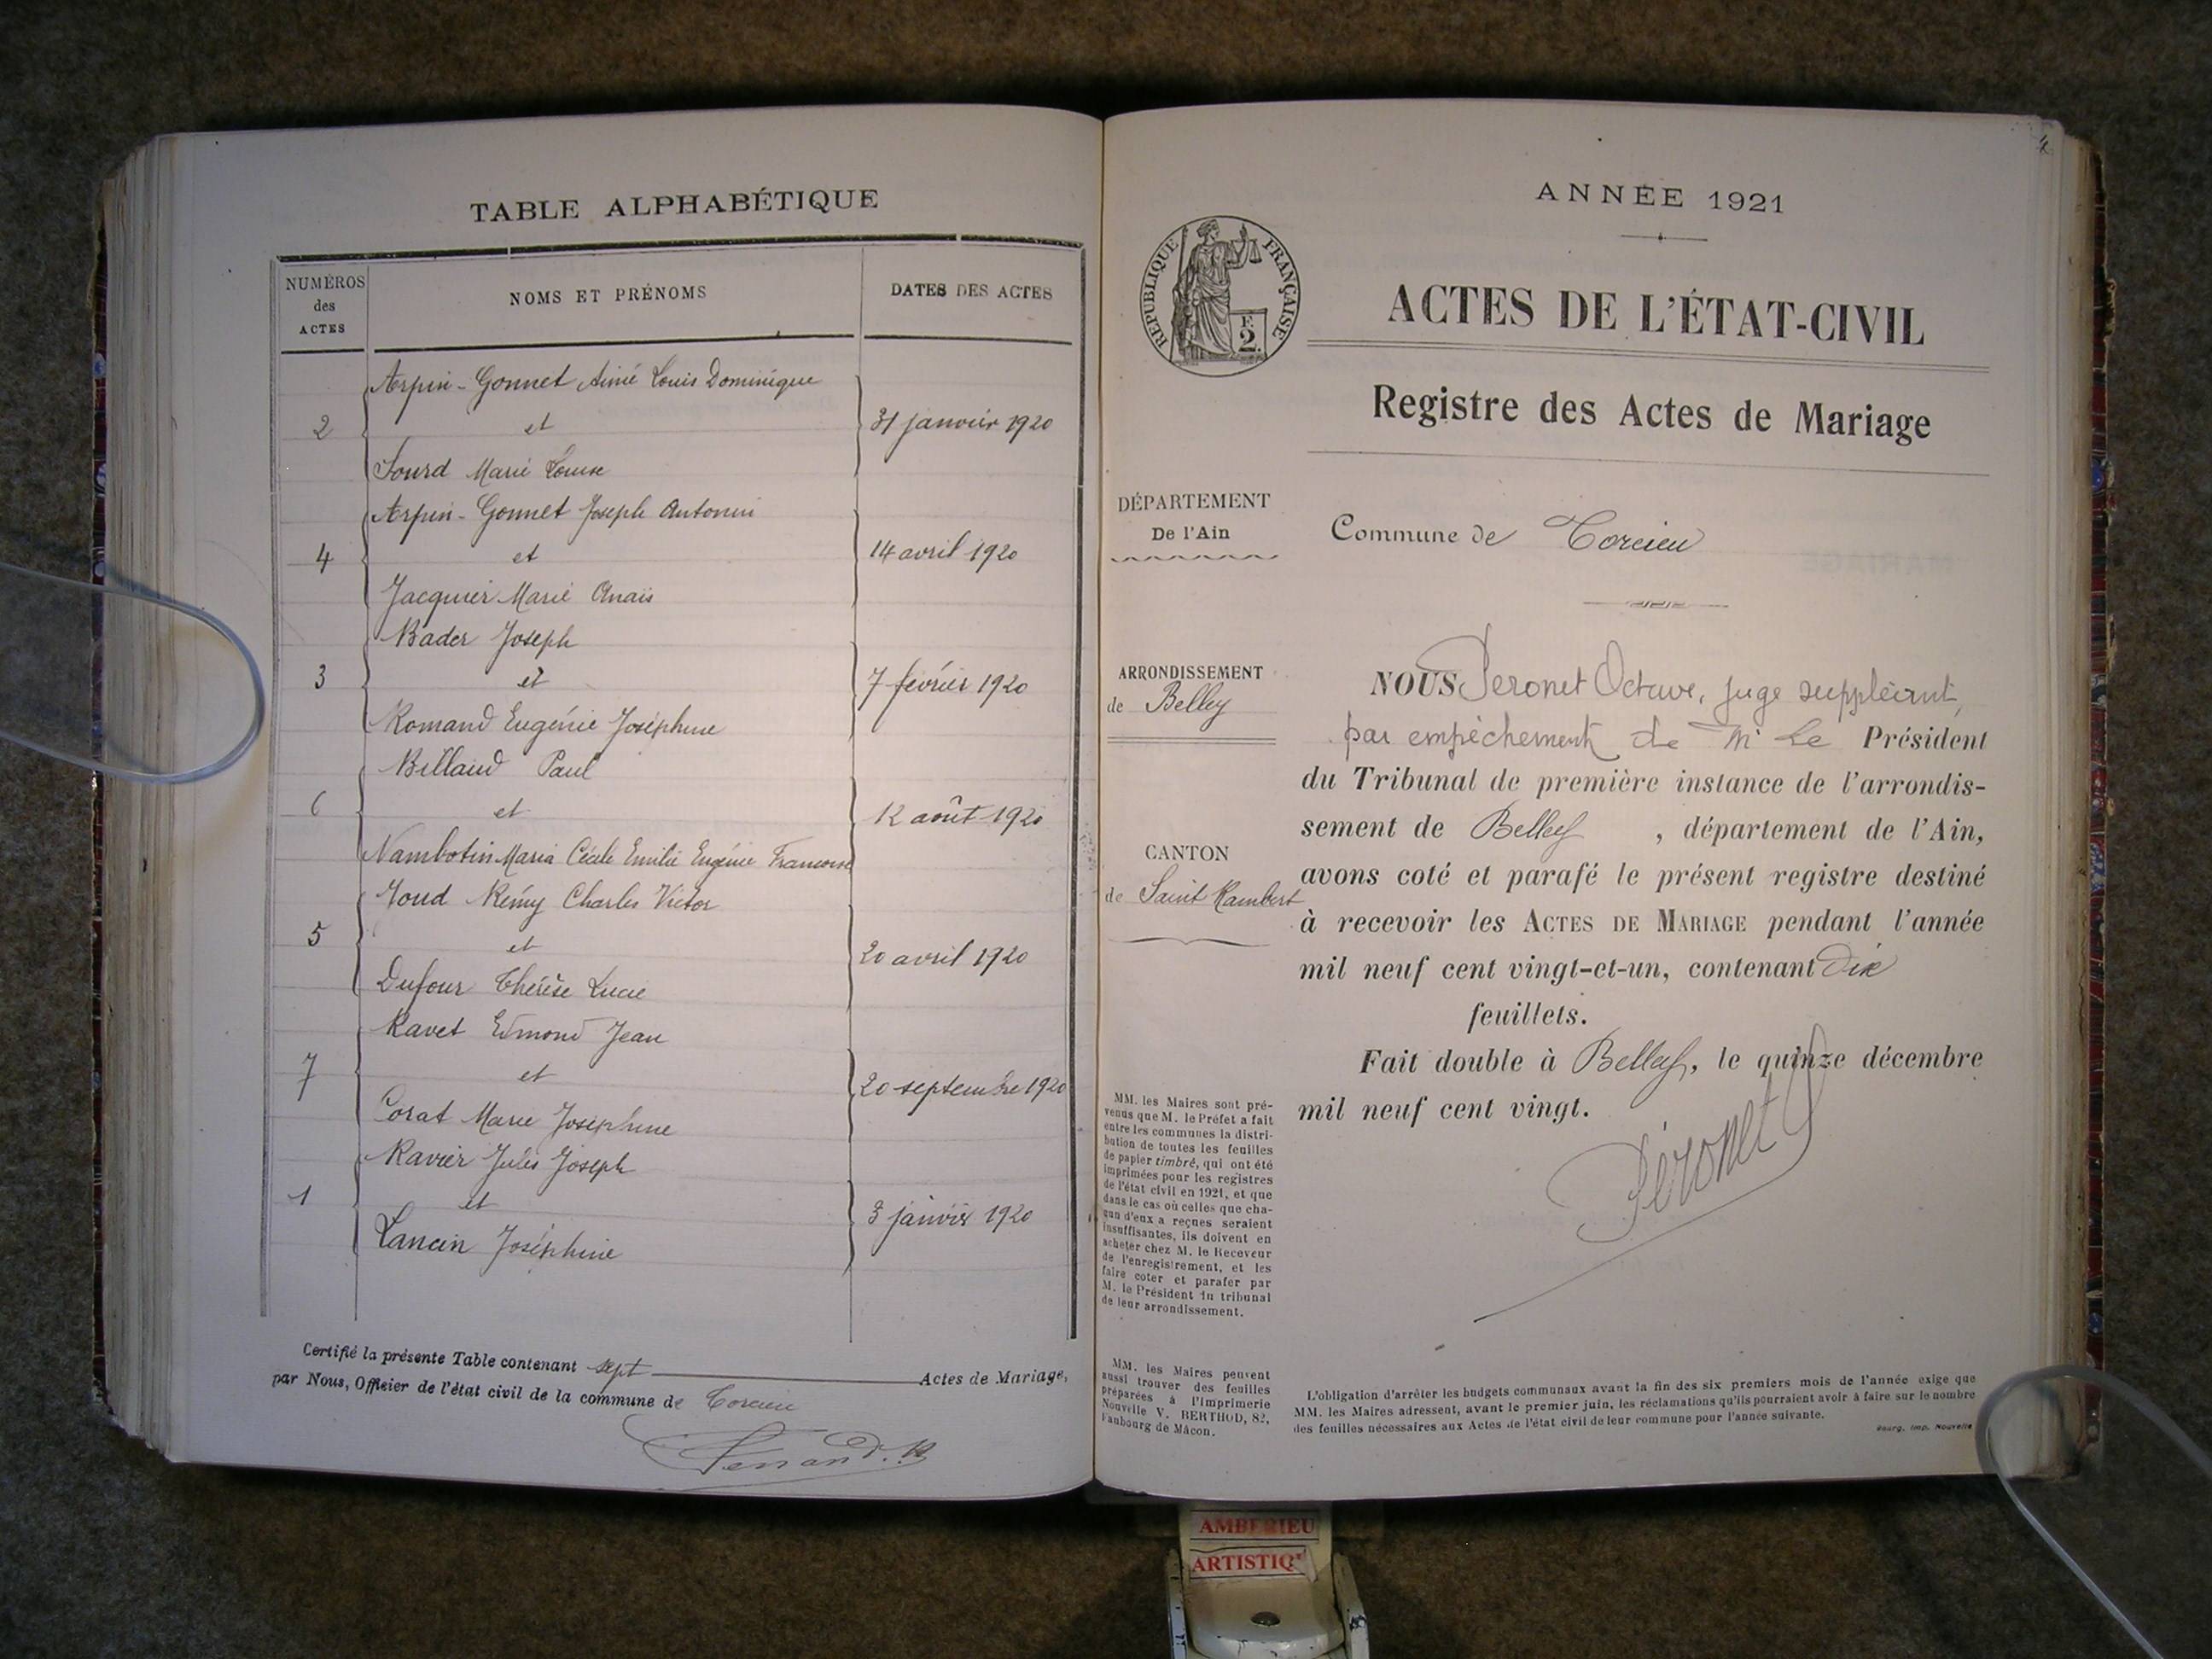 TABLE ALPHABÉTIQUE
NUMÉROS
des
ACTES
NOMS ET PRÉNOMS
DATES DES ACTES
Arpin-Gonnet Aimé Louis Dominique
2 et 31 janvier 1920
Sourd Marie Louise
Arpin-Gonnet Joseph Antonin
4 et 14 avril 1920
Jacquier Marie Anaïs
Bader Joseph
3 et 7 février 1920
Romand Eugénie Joséphine
Billaud Paul
6 et 12 août 1920
Nambotin Maria Cécile Emilie Eugénie Françoise
Moud Rémy Charles Victor
5 et 20 avril 1920
Dufour Thérèse Lucie
Ravet Edmond Jean
7 et 20 septembre 1920
Corat Marie Joséphine
Ravier Jules Joseph
1 et 3 janvier 1920
Lancin Joséphine
Certifié la présente Table contenant sept Actes de Mariage,
par Nous, Officier de l'état civil de la commune de Torcieu
ANNÉE 1921
RÉPUBLIQUE FRANÇAISE
F.
2.
ACTES DE L'ÉTAT-CIVIL
Registre des Actes de Mariage
DÉPARTEMENT
De l'Ain
Commune de Torcieu
ARRONDISSEMENT
de Belley
CANTON
de Saint Rambert
NOUS Péronet Octave, juge suppléant,
par empêchement de Mr le Président
du Tribunal de première instance de l'arrondis-
sement de Belley, département de l'Ain,
avons coté et parafé le présent registre destiné
à recevoir les ACTES DE MARIAGE pendant l'année
mil neuf cent vingt-et-un, contenant Dix
feuillets.
Fait double à Belley, le quinze décembre
mil neuf cent vingt.
Péronet
MM. les Maires sont pré-
venus que M. le Préfet a fait
entre les communes la distri-
bution de toutes les feuilles
de papier timbré, qui ont été
imprimées pour les registres
de l'état civil en 1921, et que
dans le cas où celles que cha-
cun d'eux a reçues seraient
insuffisantes, ils doivent en
acheter chez M. le Receveur
de l'enregistrement, et les
faire coter et parafer par
M. le Président du tribunal
de leur arrondissement.
MM. les Maires peuvent
aussi trouver des feuilles
préparées à l'Imprimerie
Nouvelle V. BERTHOD, 82,
Faubourg de Mâcon.
L'obligation d'arrêter les budgets communaux avant la fin des six premiers mois de l'année exige que
MM. les Maires adressent, avant le premier juin, les réclamations qu'ils pourraient avoir à faire sur le nombre
des feuilles nécessaires aux Actes de l'état civil de leur commune pour l'année suivante.
Bourg. Imp. Nouvelle
AMBERIEU
ARTISTIQ